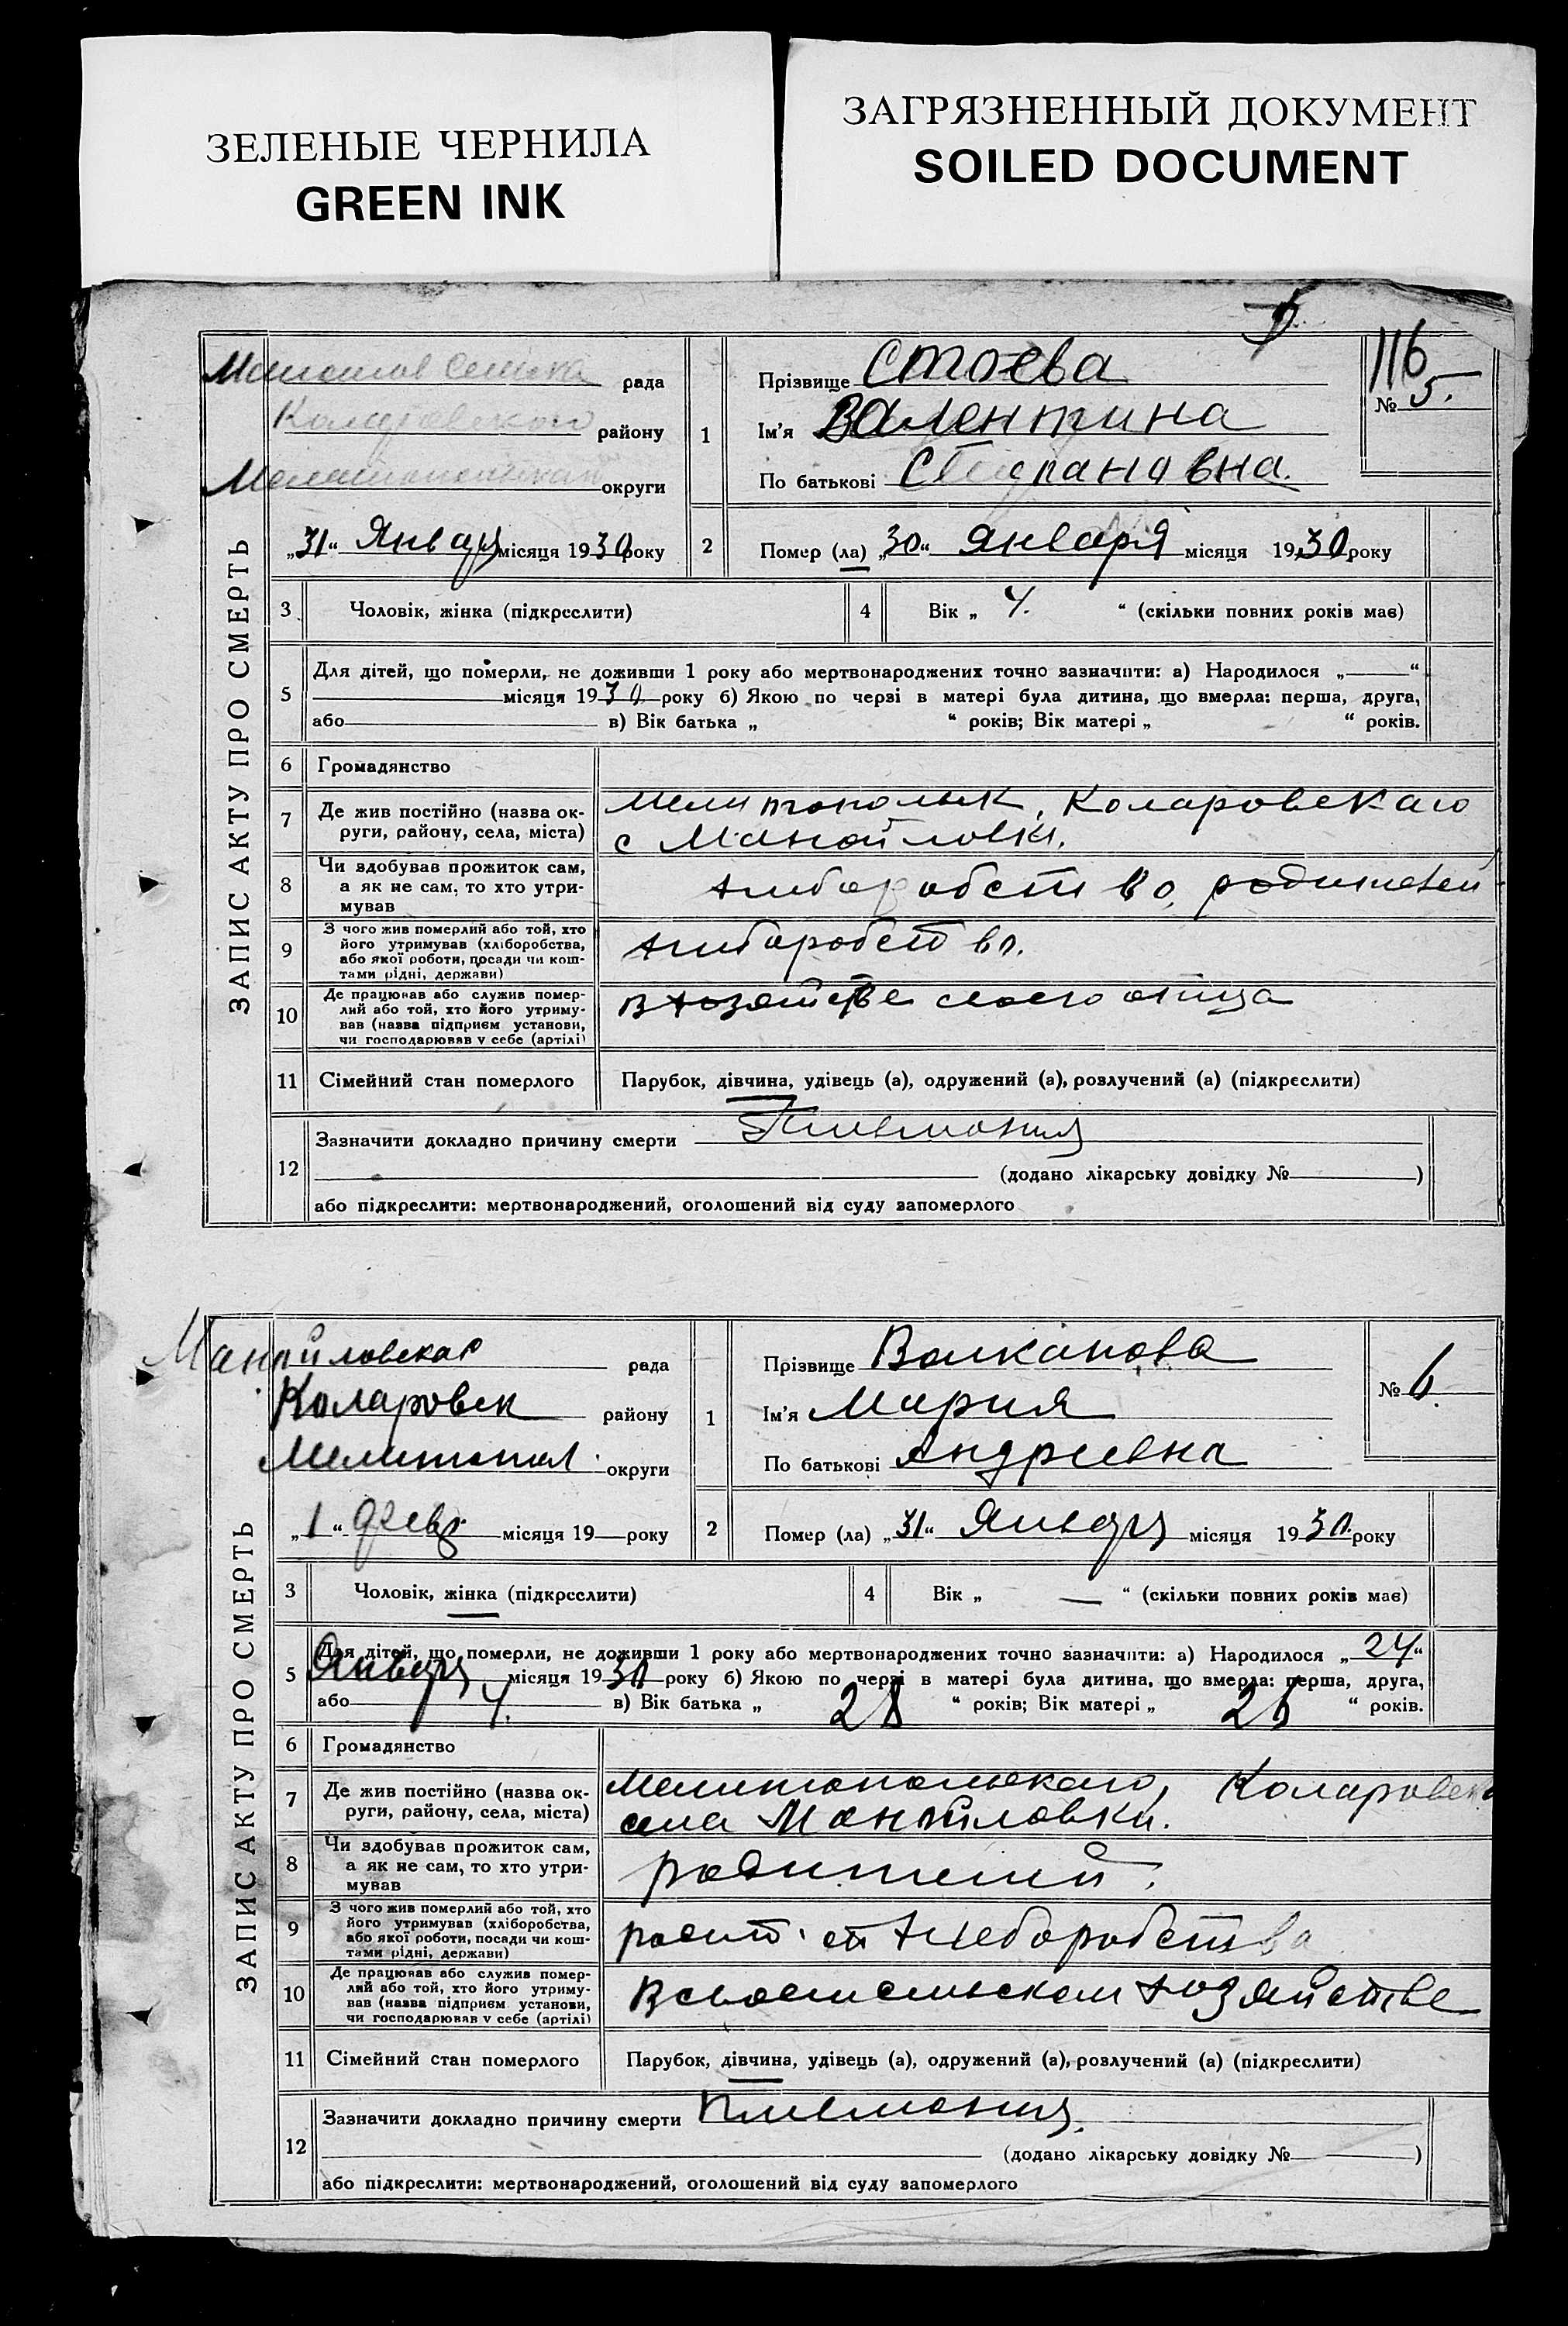 ЗЕЛЕНЫЕ ЧЕРНИЛА
GREEN INK
ЗАГРЯЗНЕННЫЙ ДОКУМЕНТ
SOILED DOCUMENT
ЗАПИС АКТУ ПРО СМЕРТЬ
116
№ 5.
рада
району
округи
„31“ Января місяця 1930 року
1 Прізвище Стоева
Ім'я Валентина
По батькові Степановна.
2 Помер (ла) „30“ Января місяця 1930 року
3 Чоловік, жінка (підкреслити)
4 Вік „ 4. “ (скільки повних років має)
5 Для дітей, що померли, не доживши 1 року або мертвонароджених точно зазначити: а) Народилося „ “
місяця 1930 року б) Якою по черзі в матері була дитина, що вмерла: перша, друга,
або в) Вік батька „ “ років; Вік матері „ “ років.
6 Громадянство
7 Де жив постійно (назва ок-
руги, району, села, міста)
Мелитопольск, Коларовского
с Манойловки.
8 Чи здобував прожиток сам,
а як не сам, то хто утри-
мував
хлиборобство, родителей
9 З чого жив померлий або той, хто
його утримував (хліборобства,
або якої роботи, посади чи кош-
тами рідні, держави)
хлиборобство.
10 Де працював або служив помер-
лий або той, хто його утриму-
вав (назва підприєм установи,
чи господарював у себе (артілі)
в хозяйстве своего отца
11 Сімейний стан померлого
Парубок, дівчина, удівець (а), одружений (а), розлучений (а) (підкреслити)
12 Зазначити докладно причину смерти Пневмония
(додано лікарську довідку № )
або підкреслити: мертвонароджений, оголошений від суду запомерлого
ЗАПИС АКТУ ПРО СМЕРТЬ
№ 6.
Манойловская рада
Коларовск району
Мелитопол. округи
„1“ Февр. місяця 19 року
1 Прізвище Волканова
Ім'я Мария
По батькові Андреевна
2 Помер (ла) „31“ Января місяця 1930 року
3 Чоловік, жінка (підкреслити)
4 Вік „ — “ (скільки повних років має)
5 Для дітей, що померли, не доживши 1 року або мертвонароджених точно зазначити: а) Народилося „24“
Января місяця 1930 року б) Якою по черзі в матері була дитина, що вмерла: перша, друга,
або 4. в) Вік батька „ 28 “ років; Вік матері „ 26 “ років.
6 Громадянство
7 Де жив постійно (назва ок-
руги, району, села, міста)
Мелитопольского, Коларовск
села Манойловки.
8 Чи здобував прожиток сам,
а як не сам, то хто утри-
мував
родителей.
9 З чого жив померлий або той, хто
його утримував (хліборобства,
або якої роботи, посади чи кош-
тами рідні, держави)
от хлеборобства
10 Де працював або служив помер-
лий або той, хто його утриму-
вав (назва підприєм установи,
чи господарював у себе (артілі)
В своем сельском хозяйстве
11 Сімейний стан померлого
Парубок, дівчина, удівець (а), одружений (а), розлучений (а) (підкреслити)
12 Зазначити докладно причину смерти Пневмония.
(додано лікарську довідку № )
або підкреслити: мертвонароджений, оголошений від суду запомерлого